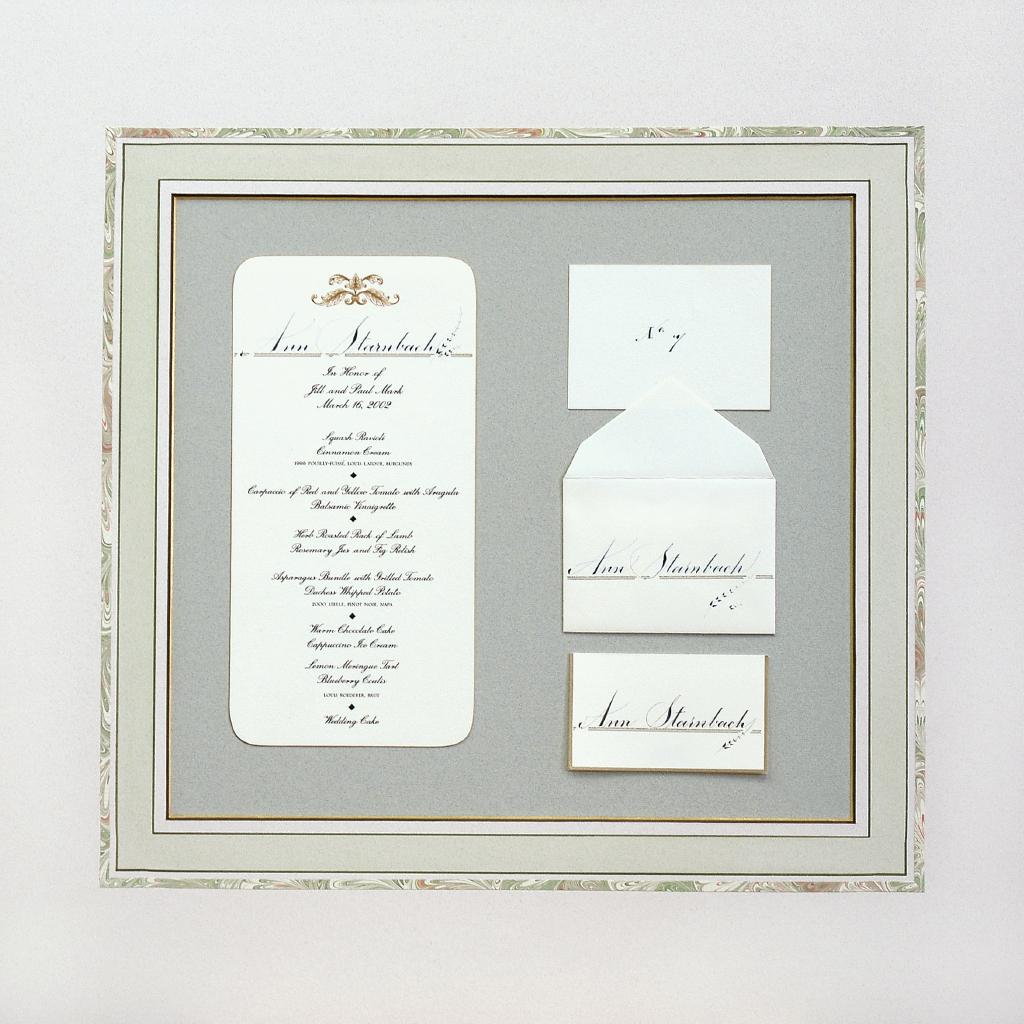 Ann Starnbach
In Honor of
Jill and Paul Mark
March 16, 2002
Squash Ravioli
Cinnamon Cream
1996 POUILLY-FUISSÉ, LOUIS LATOUR, BURGUNDY
Carpaccio of Red and Yellow Tomato with Arugula
Balsamic Vinaigrette
Herb Roasted Rack of Lamb
Rosemary Jus and Fig Relish
Asparagus Bundle with Grilled Tomato
Duchess Whipped Potato
2000 PINOT NOIR, NAPA
Warm Chocolate Cake
Cappuccino Ice Cream
Lemon Meringue Tart
Blueberry Coulis
LOUIS ROEDERER, BRUT
Wedding Cake
No 7
Ann Starnbach
Ann Starnbach